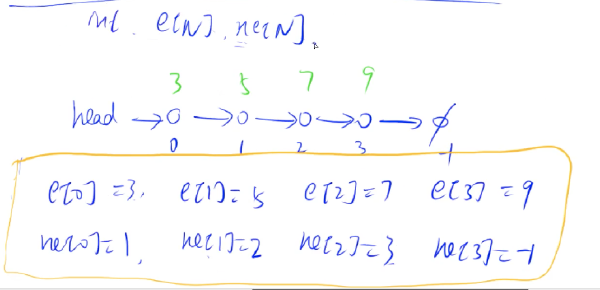 int e[N], ne[N],
3 5 7 9
head →o →o →o →o → ϕ
0 1 2 3 -1
e[0]=3, e[1]=5 e[2]=7 e[3]=9
ne[0]=1, ne[1]=2 ne[2]=3 ne[3]=-1